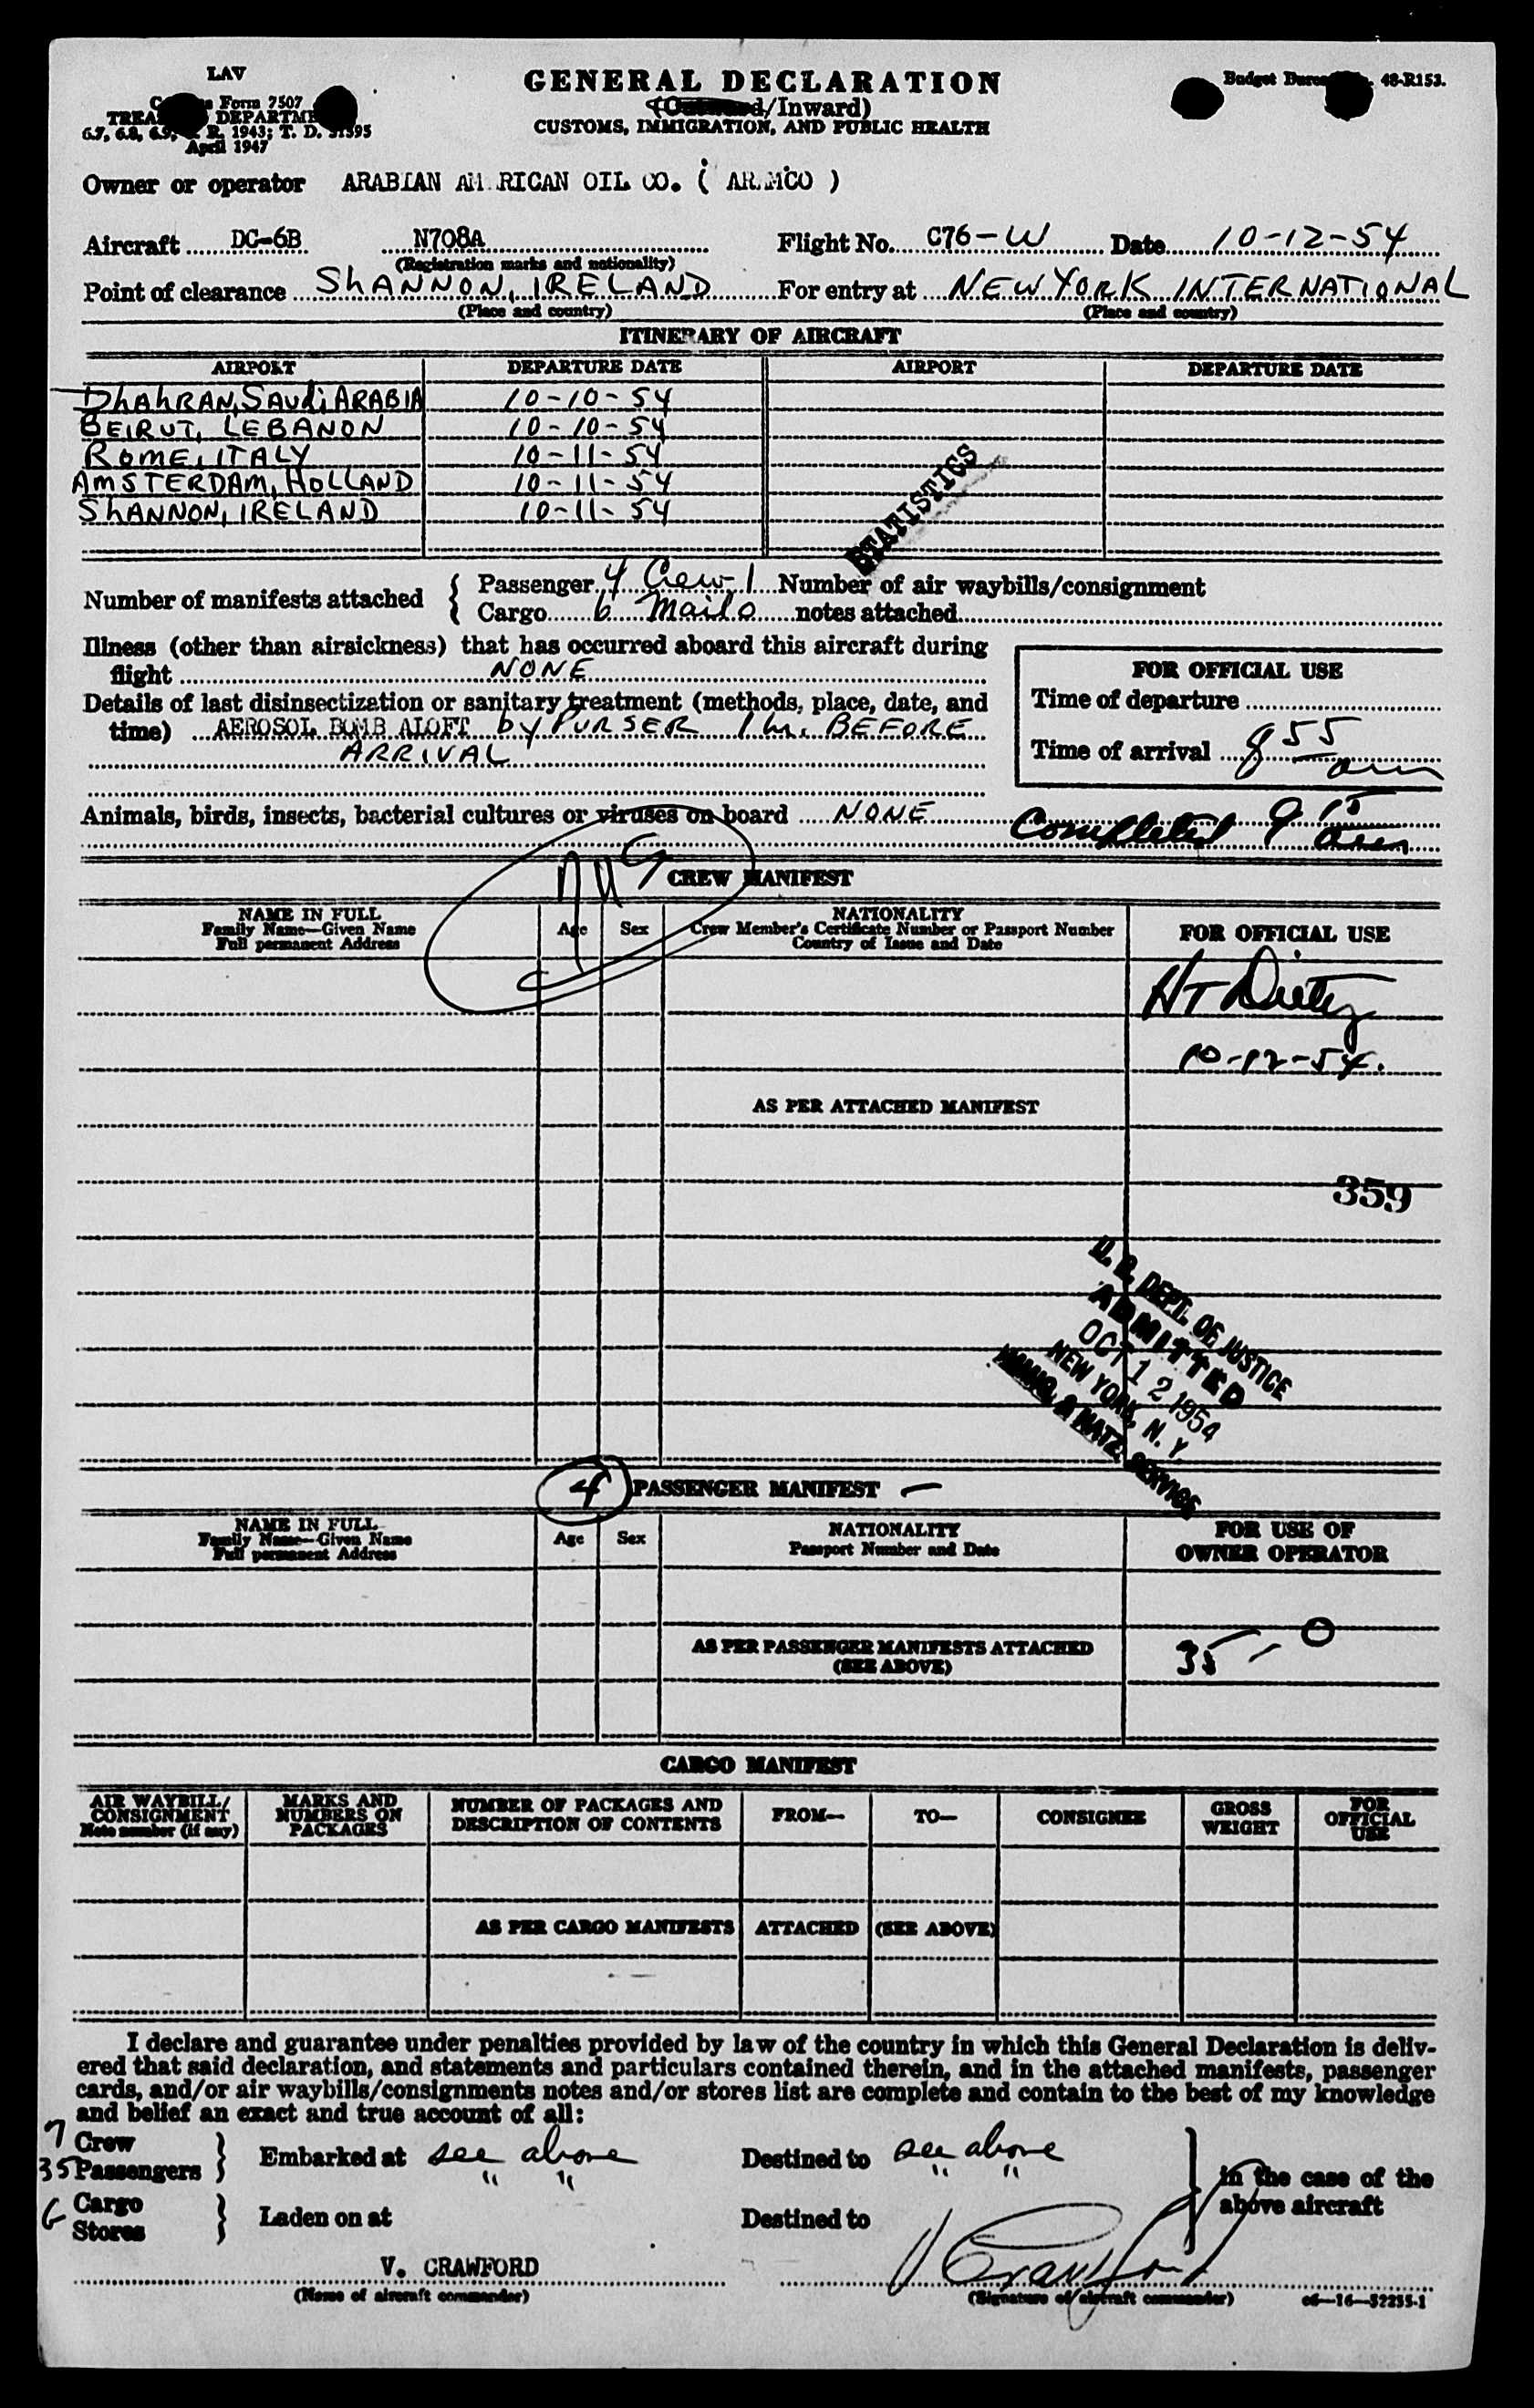 LAV
GENERAL DECLARATION
(Outward/Inward)
CUSTOMS, IMMIGRATION, AND PUBLIC HEALTH
Form 7507
TREA DEPARTME
6.7, 6.8, 6.9, R. 1943; T. D. 51595
April 1947
Budget Bureau 48-R153.
Owner or operator ARABIAN AM RICAN OIL CO. ( ARAMCO )
Aircraft DC-6B N708A Flight No. C76-W Date 10-12-54
(Registration marks and nationality)
Point of clearance ShANNON, IRELAND For entry at NEW YORK INTERNATIONAL
(Place and country) (Place and country)
ITINERARY OF AIRCRAFT
AIRPORT DEPARTURE DATE AIRPORT DEPARTURE DATE
DhAhRAN, SAUdi ARABIA 10-10-54
BEIRUT, LEBANON 10-10-54
ROME, ITALY 10-11-54
AMSTERDAM, HOLLAND 10-11-54
ShANNON, IRELAND 10-11-54
STATISTICS
Number of manifests attached { Passenger 4 Crew 1 Number of air waybills/consignment
Cargo 6 Mail 0 notes attached
Illness (other than airsickness) that has occurred aboard this aircraft during
flight NONE
Details of last disinsectization or sanitary treatment (methods, place, date, and
time) AEROSOL BOMB ALOFT by PURSER 1 hr. BEFORE
ARRIVAL
FOR OFFICIAL USE
Time of departure
Time of arrival 8 55 am
Animals, birds, insects, bacterial cultures or viruses on board NONE
Completed 9 15 am
CREW MANIFEST
NAME IN FULL
Family Name—Given Name
Full permanent Address
Age Sex
NATIONALITY
Crew Member's Certificate Number or Passport Number
Country of Issue and Date
FOR OFFICIAL USE
HT Dietz
10-12-54.
AS PER ATTACHED MANIFEST
359
U. S. DEPT. OF JUSTICE
ADMITTED
OCT 12 1954
NEW YORK, N. Y.
IMMIG. & NATZ. SERVICE
4 PASSENGER MANIFEST —
NAME IN FULL
Family Name—Given Name
Full permanent Address
Age Sex
NATIONALITY
Passport Number and Date
FOR USE OF
OWNER OPERATOR
AS PER PASSENGER MANIFESTS ATTACHED
(SEE ABOVE)
35 - 0
CARGO MANIFEST
AIR WAYBILL/
CONSIGNMENT
Note number (if any)
MARKS AND
NUMBERS ON
PACKAGES
NUMBER OF PACKAGES AND
DESCRIPTION OF CONTENTS
FROM—
TO—
CONSIGNEE
GROSS
WEIGHT
FOR
OFFICIAL
USE
AS PER CARGO MANIFESTS ATTACHED (SEE ABOVE)
I declare and guarantee under penalties provided by law of the country in which this General Declaration is deliv-
ered that said declaration, and statements and particulars contained therein, and in the attached manifests, passenger
cards, and/or air waybills/consignments notes and/or stores list are complete and contain to the best of my knowledge
and belief an exact and true account of all:
7 Crew
35 Passengers } Embarked at see above Destined to see above
" " " "
in the case of the
above aircraft
6 Cargo
Stores } Laden on at Destined to
V. CRAWFORD V Crawford
(Name of aircraft commander) (Signature of aircraft commander) c6—16—52255-1